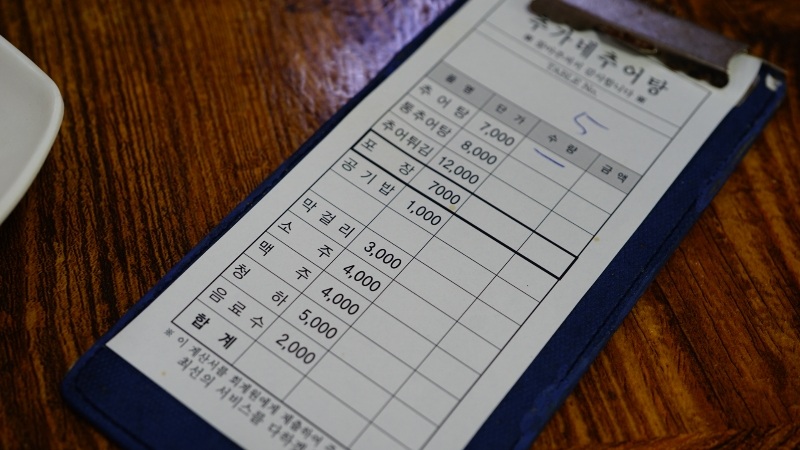 추가네추어탕
※ 찾아주셔서 감사합니다 ※
TABLE No. 5
품 명 단 가 수 량 금 액
추 어 탕 7,000 —
통추어탕 8,000
추어튀김 12,000
포 장 7000
공 기 밥 1,000
막 걸 리 3,000
소 주 4,000
맥 주 4,000
청 하 5,000
음 료 수 2,000
합 계
※ 이 계산서를 회계원에게 제출하여 주
최선의 서비스를 다하겠